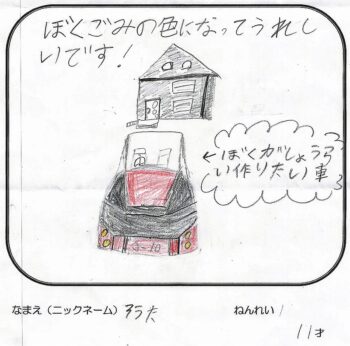 ぼくごみの色になってうれし
いです！
←ぼくがしょうら
い作りたい車
5-10
なまえ（ニックネーム）そうた
ねんれい
11才